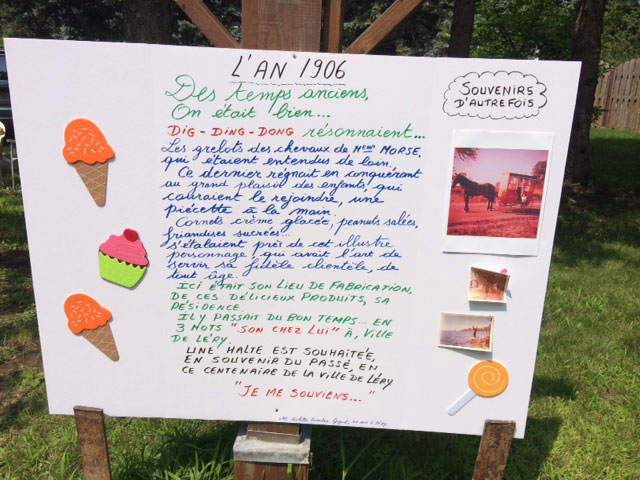 L'AN 1906
SOUVENIRS
D'AUTREFOIS
Des temps anciens,
On était bien...
DIG-DING-DONG résonnaient...
Les grelots des chevaux de MORSE,
qui étaient entendus de loin.
Ce dernier régnait en conquérant
au grand plaisir des enfants, qui
couraient le rejoindre, une
piécette à la main.
Cornets crème glacée, peanuts salées,
friandises sucrées...
s'étalaient près de cet illustre
personnage, qui avait l'art de
servir sa fidèle clientèle, de
tout âge.
ICI ÉTAIT SON LIEU DE FABRICATION,
DE CES DÉLICIEUX PRODUITS, SA
RÉSIDENCE.
IL Y PASSAIT DU BON TEMPS... EN
3 MOTS "SON CHEZ LUI" À, VILLE
DE LÉRY.
UNE HALTE EST SOUHAITÉE,
EN SOUVENIR DU PASSÉ, EN
CE CENTENAIRE DE LA VILLE DE LÉRY
"JE ME SOUVIENS..."